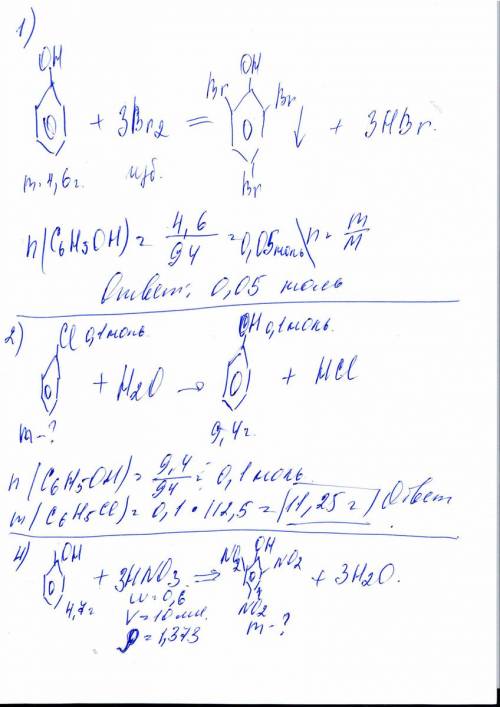 1)
OH OH
Br Br
+ 3Br2 = ↓ + 3HBr.
Br
m. 4,6 г. изб.
n(C6H5OH) = 4,6 / 94 = 0,05 моль \ n = m / M
Ответ: 0,05 моль
2) Cl 0,1 моль. OH 0,1 моль.
+ H2O → + HCl
m - ? 9,4 г.
n(C6H5OH) = 9,4 / 94 = 0,1 моль
m(C6H5Cl) = 0,1 · 112,5 = 11,25 г Ответ
4) OH NO2 OH NO2
+ 3HNO3 ⇒ + 3H2O.
4,7 г W = 0,6 NO2
V = 10 мл. m - ?
ρ = 1,373